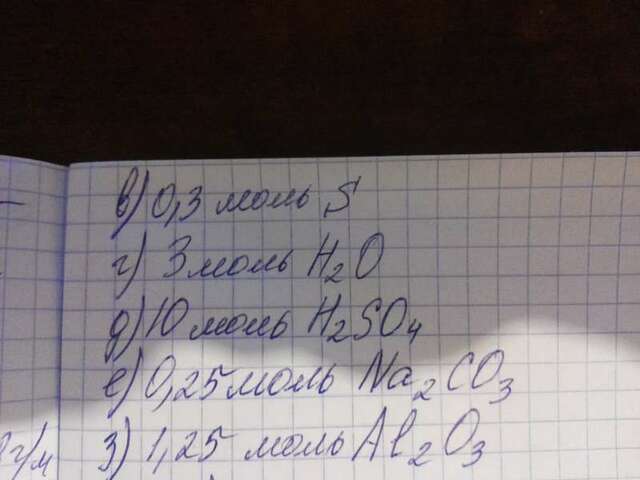 в) 0,3 моль S
г) 3 моль H₂O
д) 10 моль H₂SO₄
е) 0,25 моль Na₂CO₃
з) 1,25 моль Al₂O₃